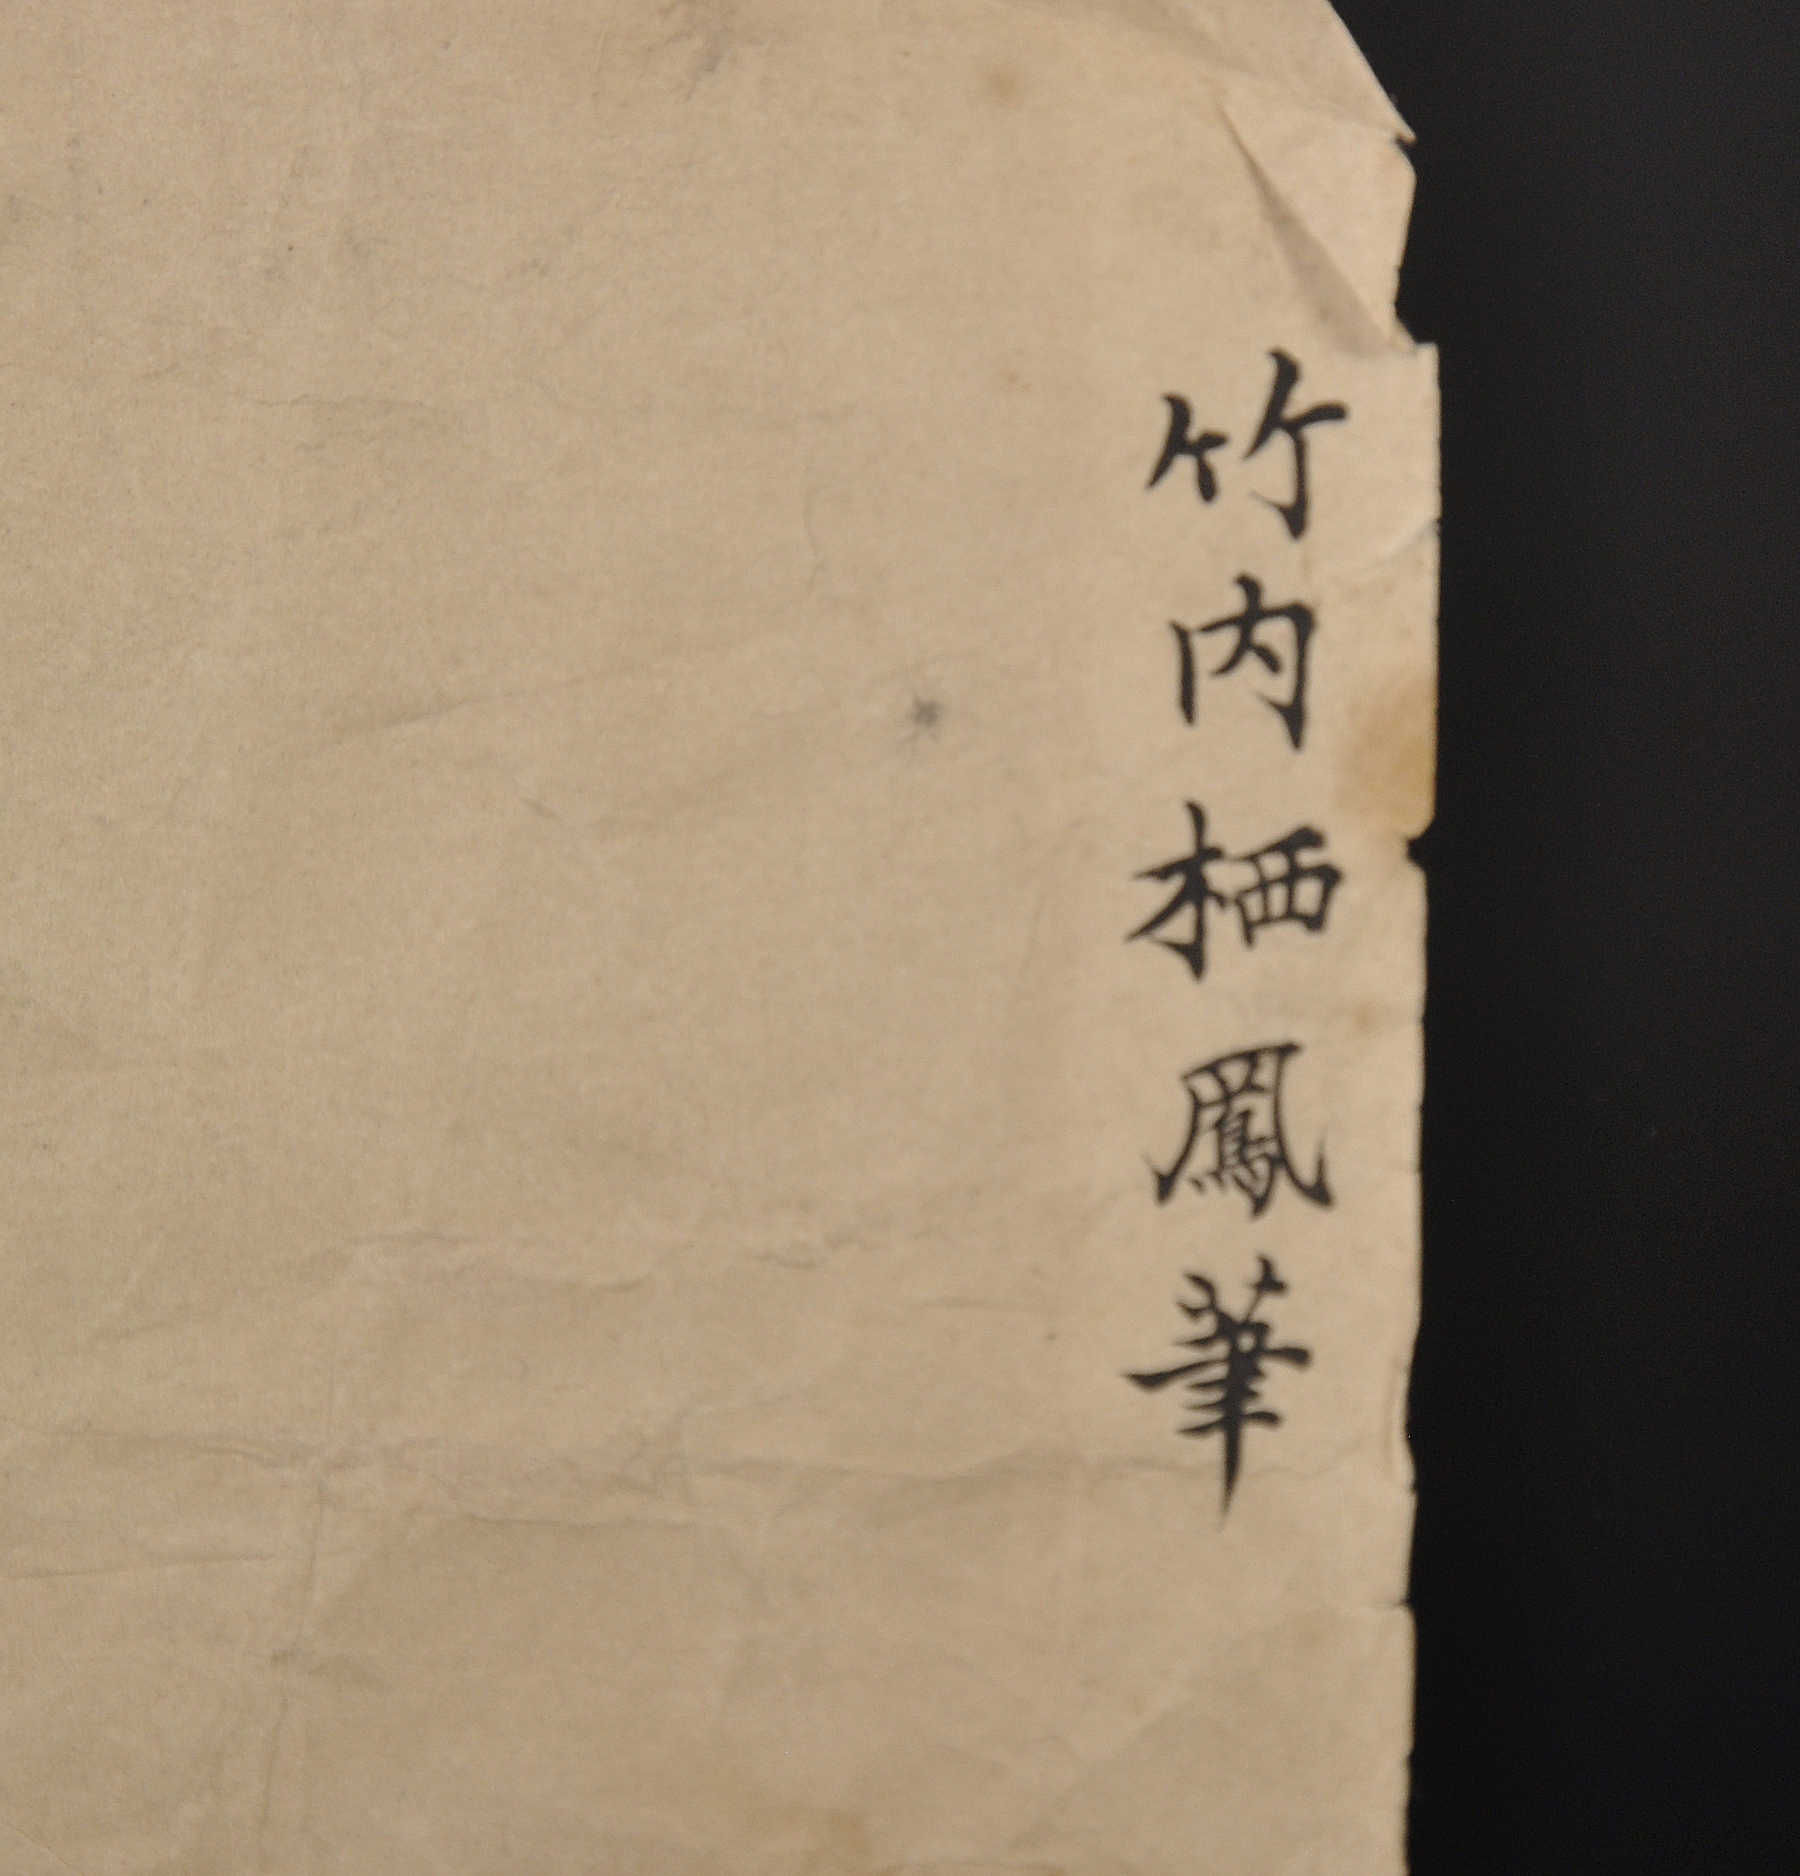 竹内栖鳳筆